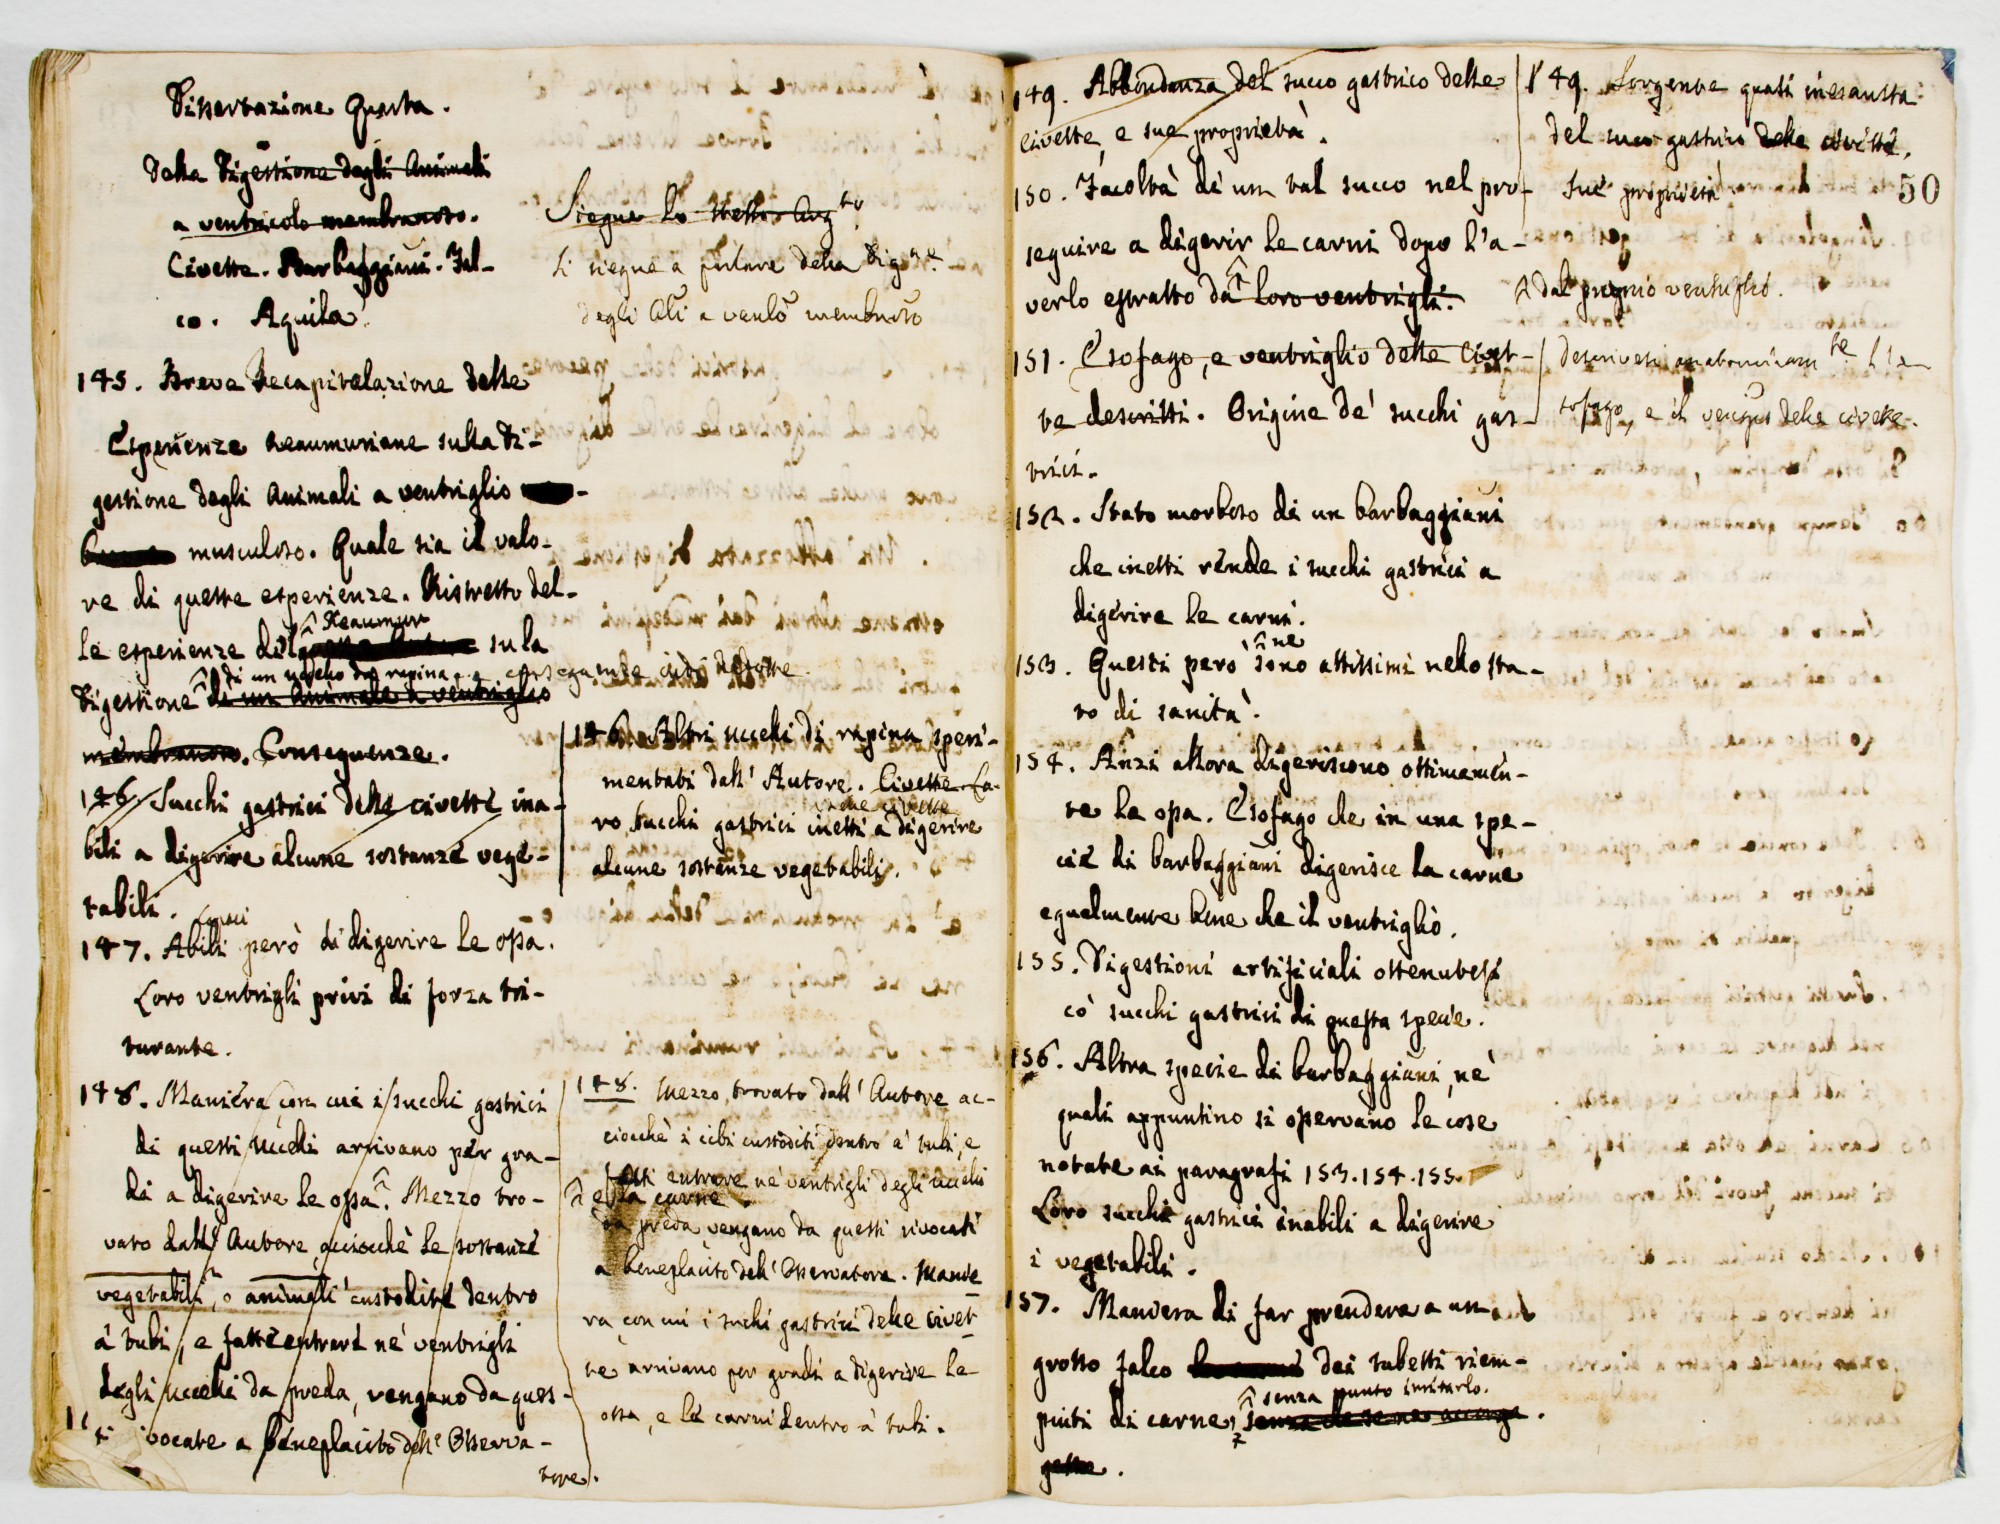 Dissertazione Quarta.
Della Digestione degli Animali
a ventricolo membranoso.
Civette. Barbaggiani. Fal-
co. Aquila.
145. Breve Recapitolazione delle
Esperienze Reaumuriane sulla di-
gestione degli Animali a ventriglio
musculoso. Quale sia il valo-
re di queste esperienze. Ristretto del-
Reaumur
le esperienze del su la
di un uccello da rapina, e conseguenze
Digestione di un Animale a ventriglio
membranoso. Conseguenze.
146. Succhi gastrici delle civette ina-
bili a digerire alcune sostanze vege-
tabili.
147. Abili però di digerire le ossa.
Loro ventrigli privi di forza tri-
turante.
148. Maniera con cui i succhi gastrici
di questi Uccelli arrivano per gra-
di a digerire le ossa. Mezzo tro-
vato dall' Autore acciocchè le sostanze
vegetabili, o animali custodite dentro
a' tubi, e fatte entrare ne' ventrigli
degli uccelli da preda, vengano da ques-
ti rivocate a beneplacito dell' Osserva-
tore.
Siegue lo stesso Arg.to
Si siegue a parlare della Dig.ne
degli Ali a ventlo membnoso
146. Altri uccelli di rapina speri-
mentati dall' Autore. Civette. Lo-
nelle civette
ro succhi gastrici inetti a digerire
alcune sostanze vegetabili.
148. Mezzo trovato dall' Autore ac-
ciocchè i cibi custoditi dentro a' tubi, e
fatti entrare ne' ventrigli degli uccelli
e la carne.
da preda vengano da questi rivocati
a beneplacito dell' Osservatore. Manie
ra con cui i succhi gastrici delle civet-
te arrivano per gradi a digerire le
ossa, e le carni dentro a' tubi.
149. Abbondanza del succo gastrico delle
civette, e sue proprietà.
150. Facoltà di un tal succo nel pro-
seguire a digerir le carni dopo l'a-
verlo estratto da loro ventrigli.
151. Esofago, e ventriglio delle Civet-
te descritti. Origine de' succhi gas-
trici.
152. Stato morboso di un barbaggiani
che inetti rende i succhi gastrici a
digerire le carni.
ne
153. Questi però sono attissimi nello sta-
to di sanità.
154. Anzi allora digeriscono ottimamen-
te le ossa. Esofago che in una spe-
cie di barbaggiani digerisce la carne
egualmente bene che il ventriglio.
155. Digestioni artificiali ottenutesi
co' succhi gastrici di questa specie.
156. Altra specie di barbaggiani, ne'
quali appuntino si osservano le cose
notate ai paragrafi 153. 154. 155.
Loro succhi gastrici inabili a digerire
i vegetabili.
157. Maniera di far prendere a un
grosso falco dei tubetti riem-
senza punto irritarlo.
piuti di carne, senza che se ne accorga.
149. Sorgente quasi inesausta
del succo gastrico delle civette.
Sue proprietà
50
dal proprio ventriglio.
Descrivesi anatomicam.te l'e
sofago, e il ventrig.o delle civette.